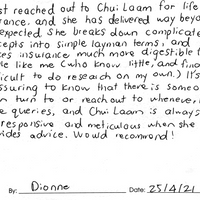 st reached out to Chui Laam for life
rance. and she has delivered way beyo
expected. She breaks down complicate
cepts into simple layman terms, and
es insurance much more digestible t
le like me (who know little, and fin
icult to do research on my own.) It's
ssuring to know that there is someo
n turn to or reach out to whenever
e queries, and Chui Laam is always
responsive and meticulous when she
vides advice. Would recommend!
By: Dionne Date: 25/4/21